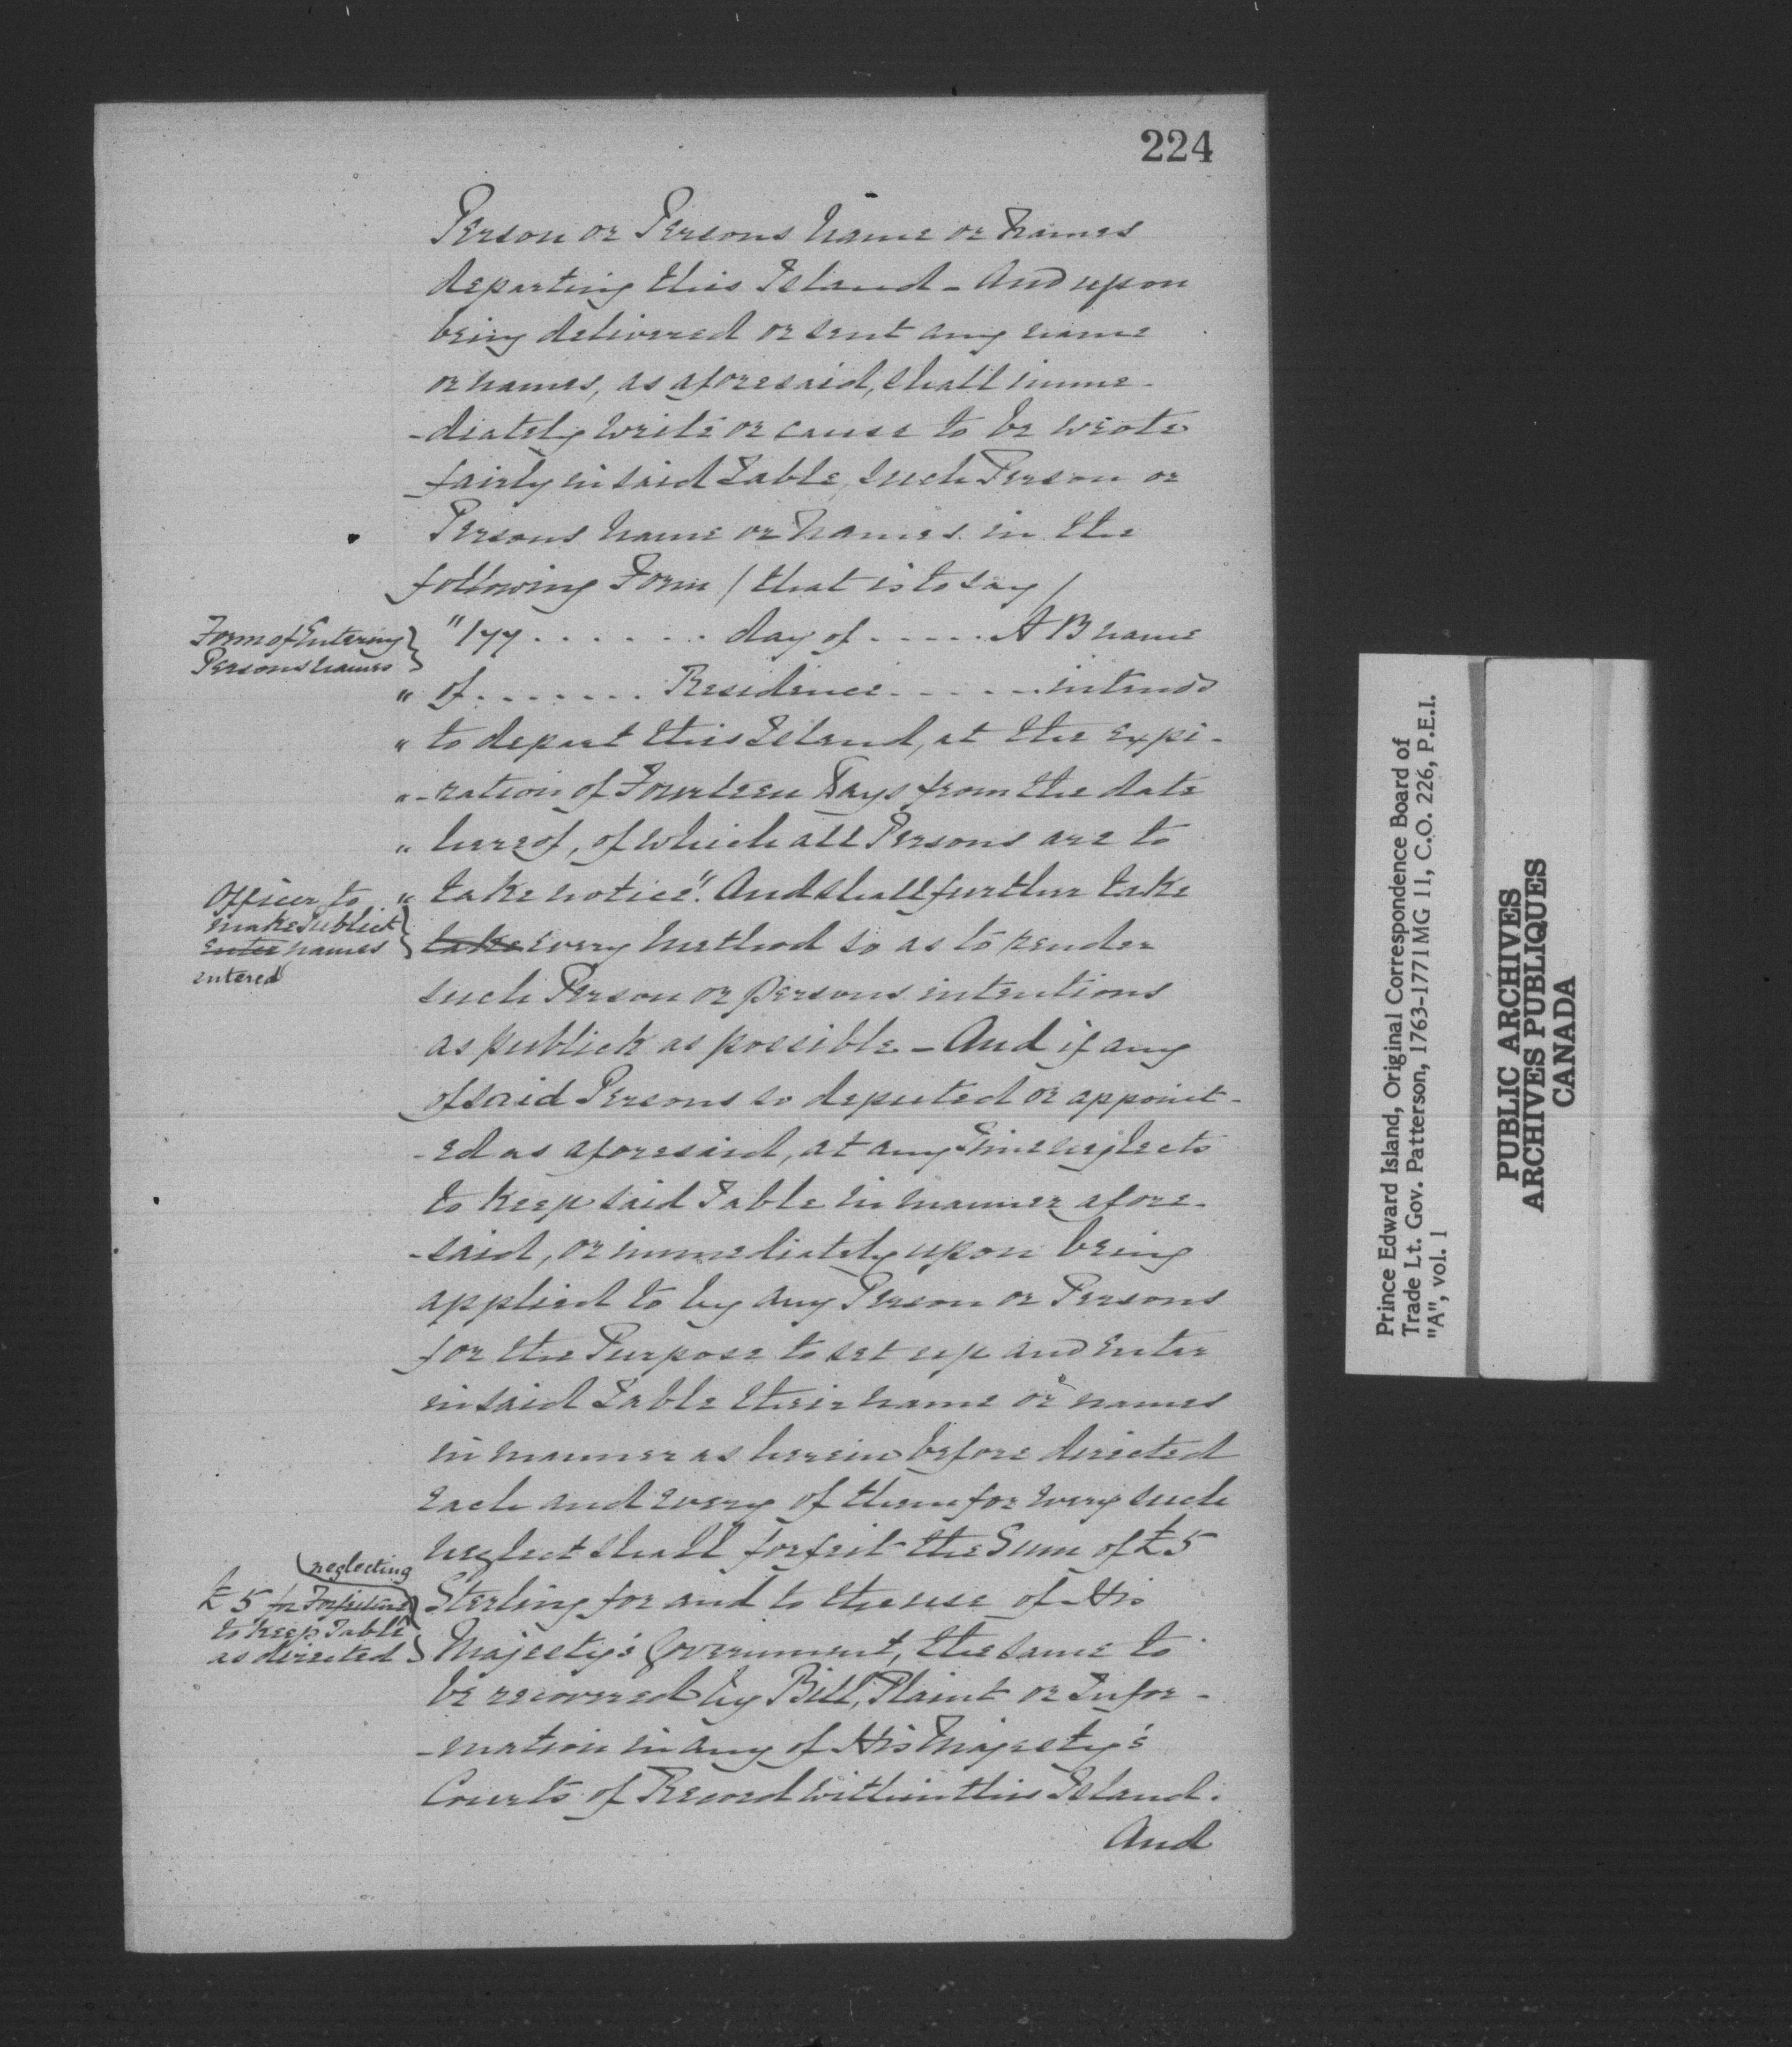 224
Person or Persons Name or Names
departing this Island - And upon
being delivered or sent any name
or names, as aforesaid, shall imme-
-diately write or cause to be wrote
fairly in said Table, such Person or
Persons Name or Names in the
following Form / that is to say /
Form of Entering
Persons names
"177 . . . . . . . day of . . . . . A B name
" of . . . . . . . . Residence . . . . . . intends
" to depart this Island, at the Expi-
" -ration of Fourteen Days from the date
" hereof, of which all Persons are to
Officer to
make Publick
Enter names
entered
" take notice". And shall further take
take every method so as to render
such Person or Persons intentions
as publick as possible - And if any
of said Persons so deputed or appoint-
-ed as aforesaid, at any Time neglects
to keep said Table in manner afore-
-said, or immediately upon being
applied to by any Person or Persons
for the Purpose to set up and Enter
in said Table their name or names
in manner as herein before directed
each and every of them for every such
neglect shall forfeit the Sum of £5
neglecting
£5 for Forfeiture
to keep Table
as directed
Sterling for and to the use of His
Majesty's Government, the same to
be recovered by Bill, Plaint or Infor-
-mation in any of His Majesty's
Courts of Record within this Island.
And
Prince Edward Island, Original Correspondence Board of
Trade Lt. Gov. Patterson, 1763-1771 MG 11, C.O. 226, P.E.I.
"A", vol. 1
PUBLIC ARCHIVES
ARCHIVES PUBLIQUES
CANADA